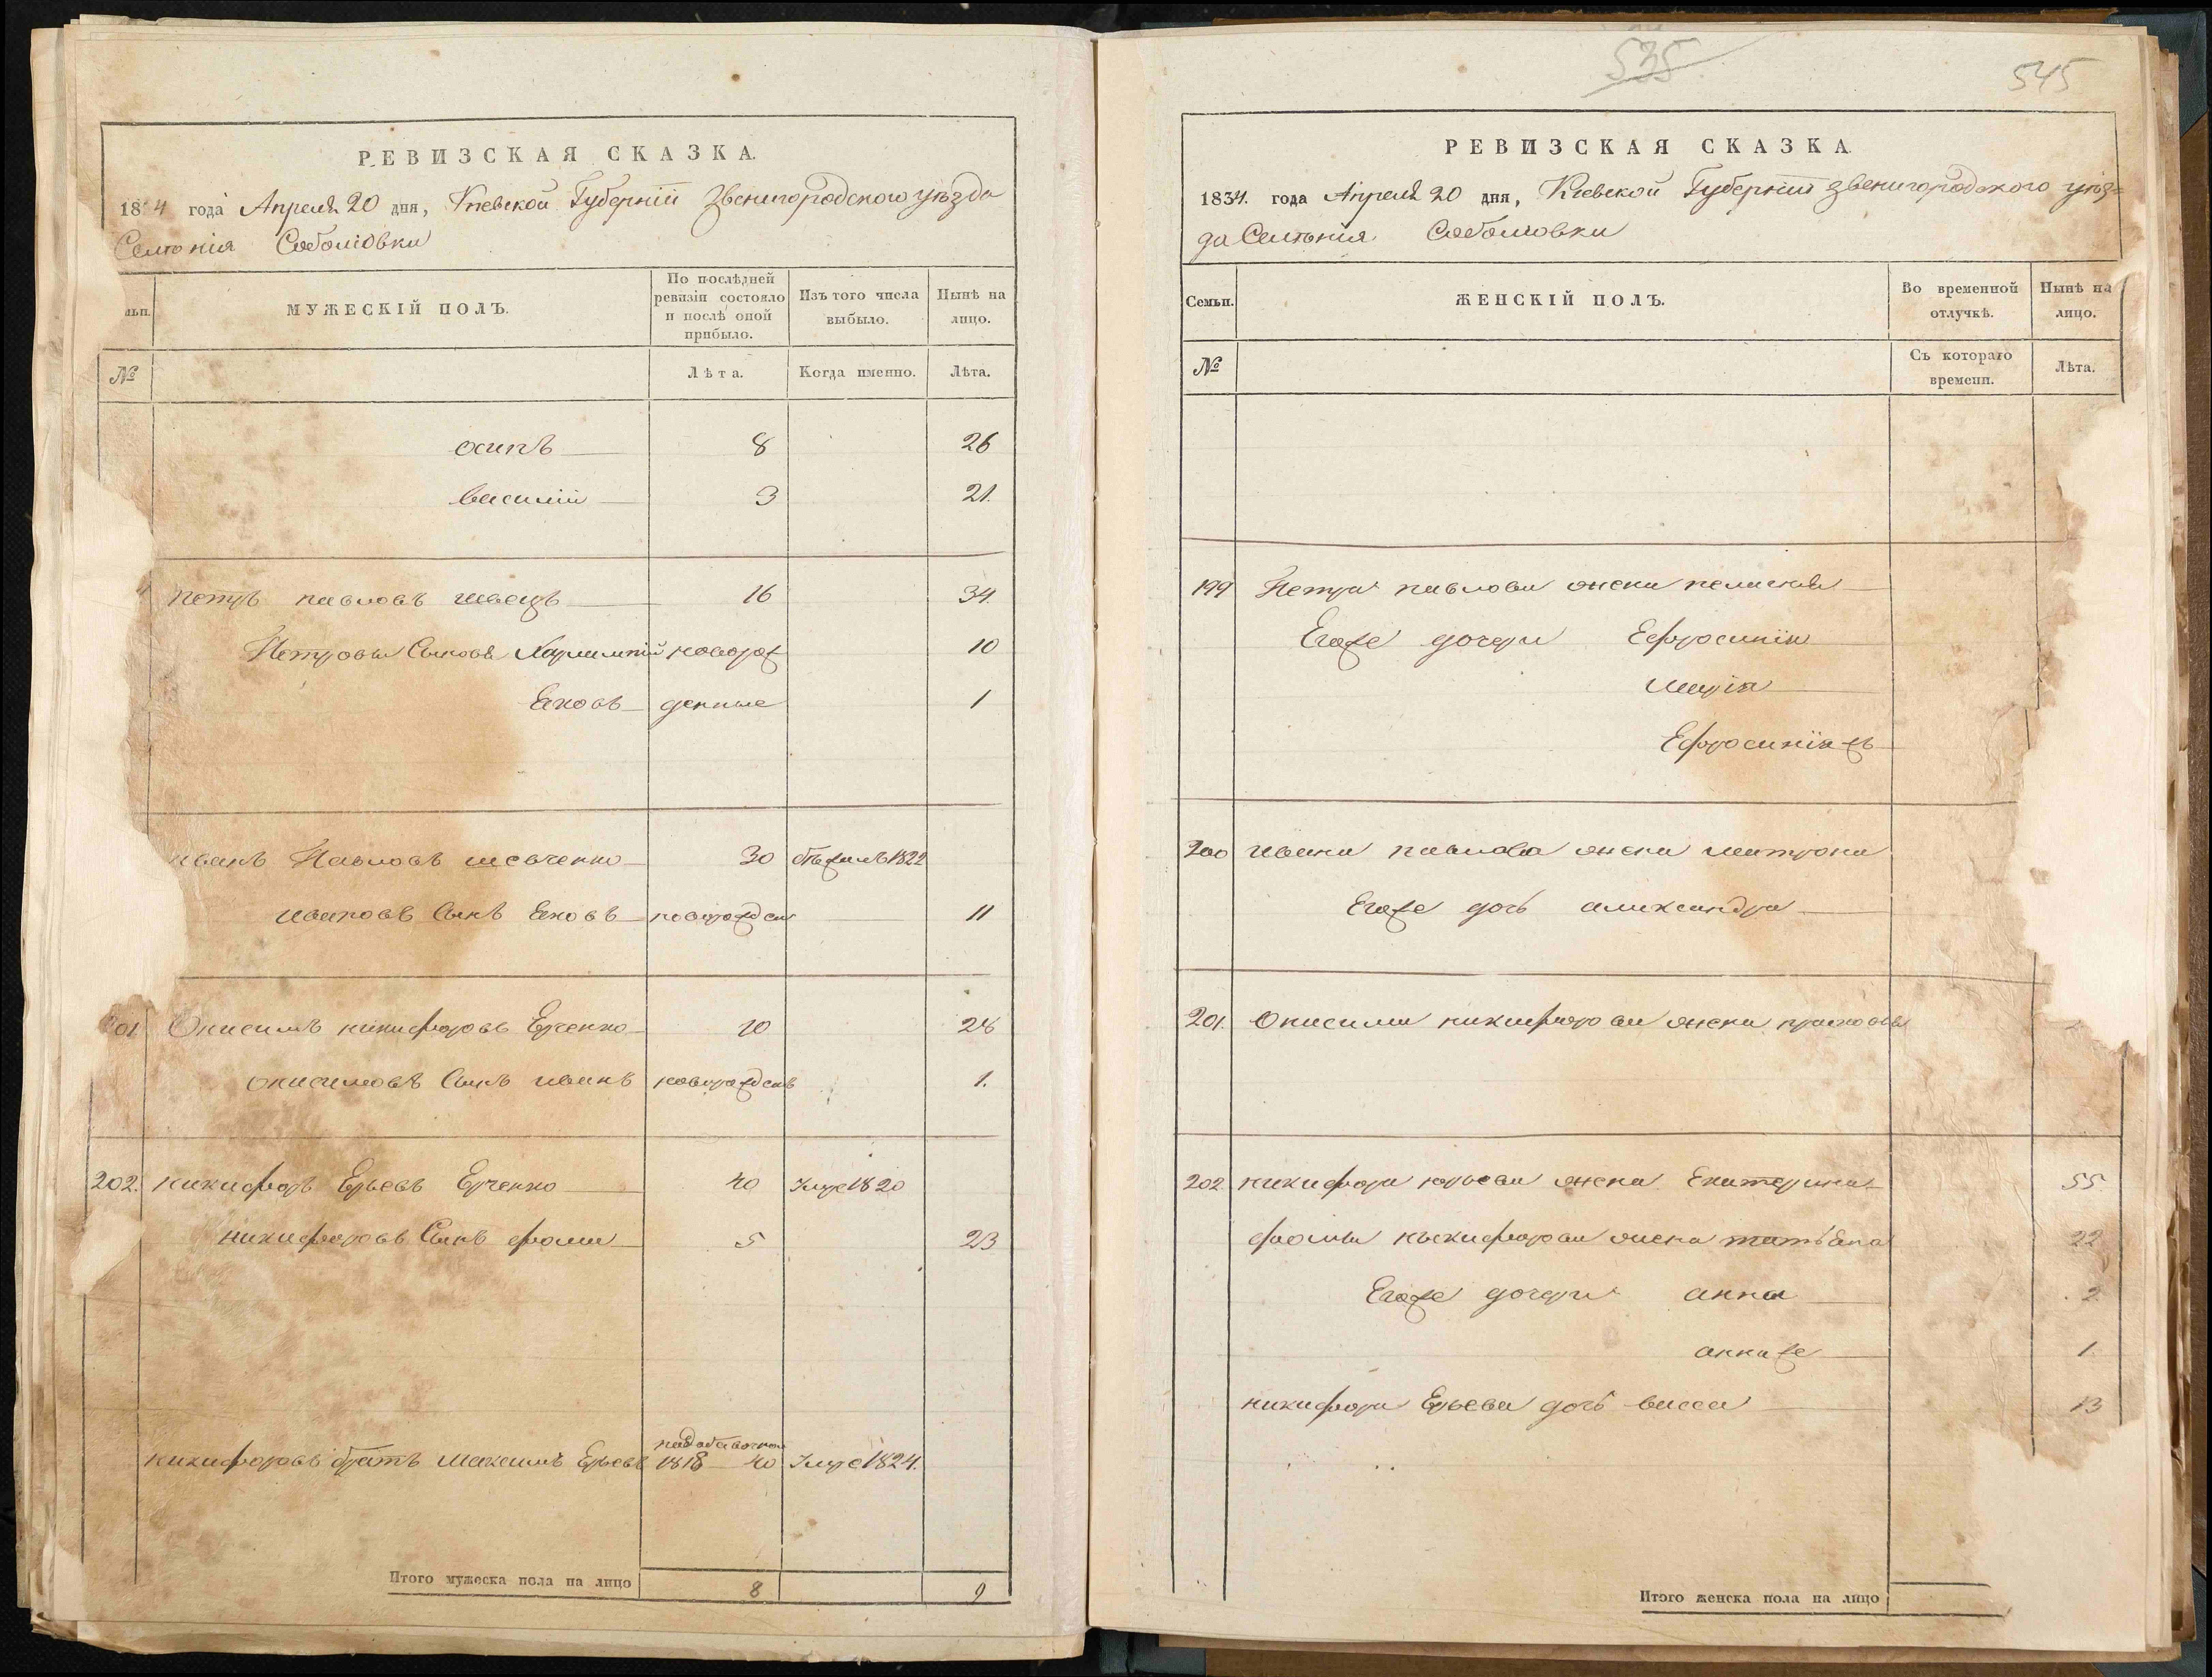 РЕВИЗСКАЯ СКАЗКА.
18 4 года Апреля 20 дня, Киевской Губерніи Звенигородского уѣзда
Селенія Соболіовки
МУЖЕСКІЙ ПОЛЪ.
По послѣдней ревизіи состояло и послѣ оной прибыло.
Изъ того числа выбыло.
Нынѣ на лицо.
№
Лѣта.
Когда именно.
Лѣта.
осипъ 8 26
василій 3 21.
петръ павловъ швецъ 16 34.
Петровы Сыновья Харлампій новорож 10
Яковъ денные 1
иванъ Павловъ шевченко 30 1822
ивановъ Сынъ Яковъ новорожден 11
201 Онисимъ никифоровъ Ерченко 10 28
онисимовъ Сынъ иванъ новорожденъ 1.
202. никифоръ Ерьевъ Ерченко 40 Умре 1820
никифоровъ Сынъ фома 5 23
никифоровъ братъ Максимъ Ерьевъ 1818 40 Умре 1824.
Итого мужеска пола на лицо 8 9
535
545
РЕВИЗСКАЯ СКАЗКА.
1834. года Апреля 20 дня, Киевской Губерніи Звенигородского уѣз=
да Селенія Соболиовки
Семьи.
ЖЕНСКІЙ ПОЛЪ.
Во временной отлучкѣ.
Нынѣ на лицо.
№
Съ котораго времени.
Лѣта.
199 Петра павлова жена пелагея
Егоже дочери Ефросинія
марія
Ефросинія жъ
200 ивана павлова жена матрона
Егоже дочь александра
201. Онисима никифорова жена прасковья
202 никифора юрьева жена Екатерина 55
фомы никифорова жена татьяна 22
Егоже дочери анна 2
анна же 1.
никифора Ерьева дочь васса 13
Итого женска пола на лицо